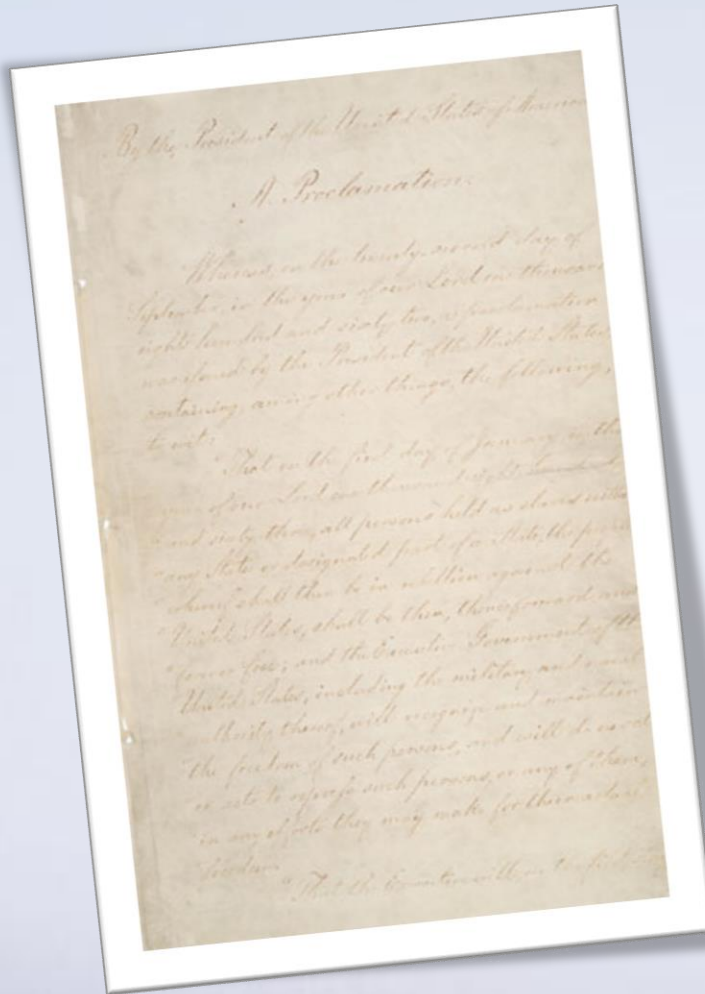 By the President of the United States of America
A Proclamation.
Whereas, on the twenty-second day of
September, in the year of our Lord one thousand
eight hundred and sixty two, a proclamation
was issued by the President of the United States,
containing, among other things, the following,
to wit:
"That on the first day of January, in the
year of our Lord one thousand eight hundred
and sixty-three, all persons held as slaves within
any State or designated part of a State, the people
whereof shall then be in rebellion against the
United States, shall be then, thenceforward, and
forever free; and the Executive Government of the
United States, including the military and naval
thereof, will recognize and maintain
the freedom of such persons, and will do no act
or acts to repress such persons, or any of them,
in any efforts they may make for their actual
freedom.
"That the Executive will, on the first